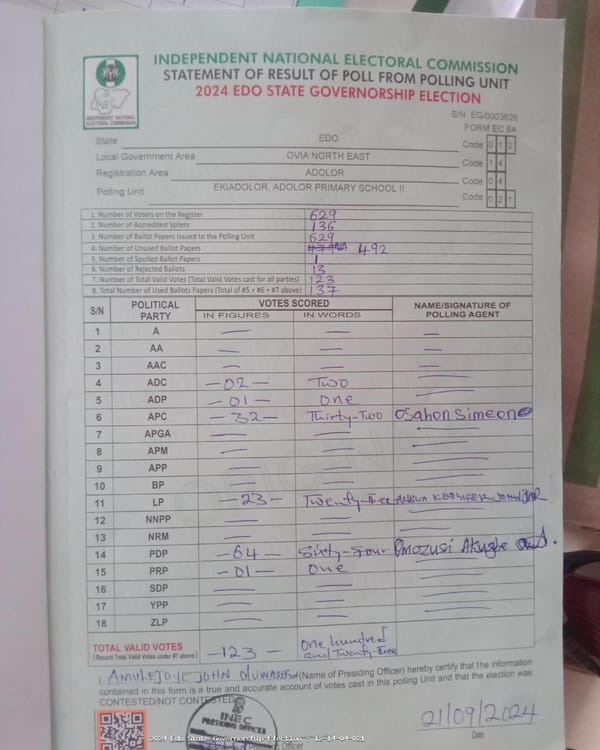 INDEPENDENT NATIONAL ELECTORAL COMMISSION
STATEMENT OF RESULT OF POLL FROM POLLING UNIT
2024 EDO STATE GOVERNORSHIP ELECTION
INEC
INDEPENDENT NATIONAL
ELECTORAL COMMISSION
S/N: EG/0003626
FORM EC 8A
State EDO Code 0 1 2
Local Government Area OVIA NORTH EAST Code 1 4
Registration Area ADOLOR Code 0 4
Polling Unit EKIADOLOR, ADOLOR PRIMARY SCHOOL II Code 0 2 1
1. Number of Voters on the Register 629
2. Number of Accredited Voters 136
3. Number of Ballot Papers Issued to the Polling Unit 629
4. Number of Unused Ballot Papers 492
5. Number of Spoiled Ballot Papers 1
6. Number of Rejected Ballots 13
7. Number of Total Valid Votes (Total Valid Votes cast for all parties) 123
8. Total Number of Used Ballots Papers (Total of #5 + #6 + #7 above) 137
S/N POLITICAL PARTY VOTES SCORED NAME/SIGNATURE OF POLLING AGENT
IN FIGURES IN WORDS
1 A — — —
2 AA — — —
3 AAC — — —
4 ADC -02- Two —
5 ADP -01- one —
6 APC -32- Thirty-Two Osahon Simeone
7 APGA — — —
8 APM — — —
9 APP — — —
10 BP — — —
11 LP -23- Twenty-Three
12 NNPP — — —
13 NRM — — —
14 PDP -64- Sixty-Four Omozusi Akugbe
15 PRP -01- one —
16 SDP — — —
17 YPP — — —
18 ZLP — — —
TOTAL VALID VOTES -123- One hundred and Twenty-Three
(Record Total Valid Votes under #7 above)
I, JOHN (Name of Presiding Officer) hereby certify that the information
contained in this form is a true and accurate account of votes cast in this polling Unit and that the election was
CONTESTED/NOT CONTESTED
INEC
PRESIDING OFFICER
21/09/2024
Date
2024 Edo State Governorship Election - 12-14-04-021
Presiding Officer